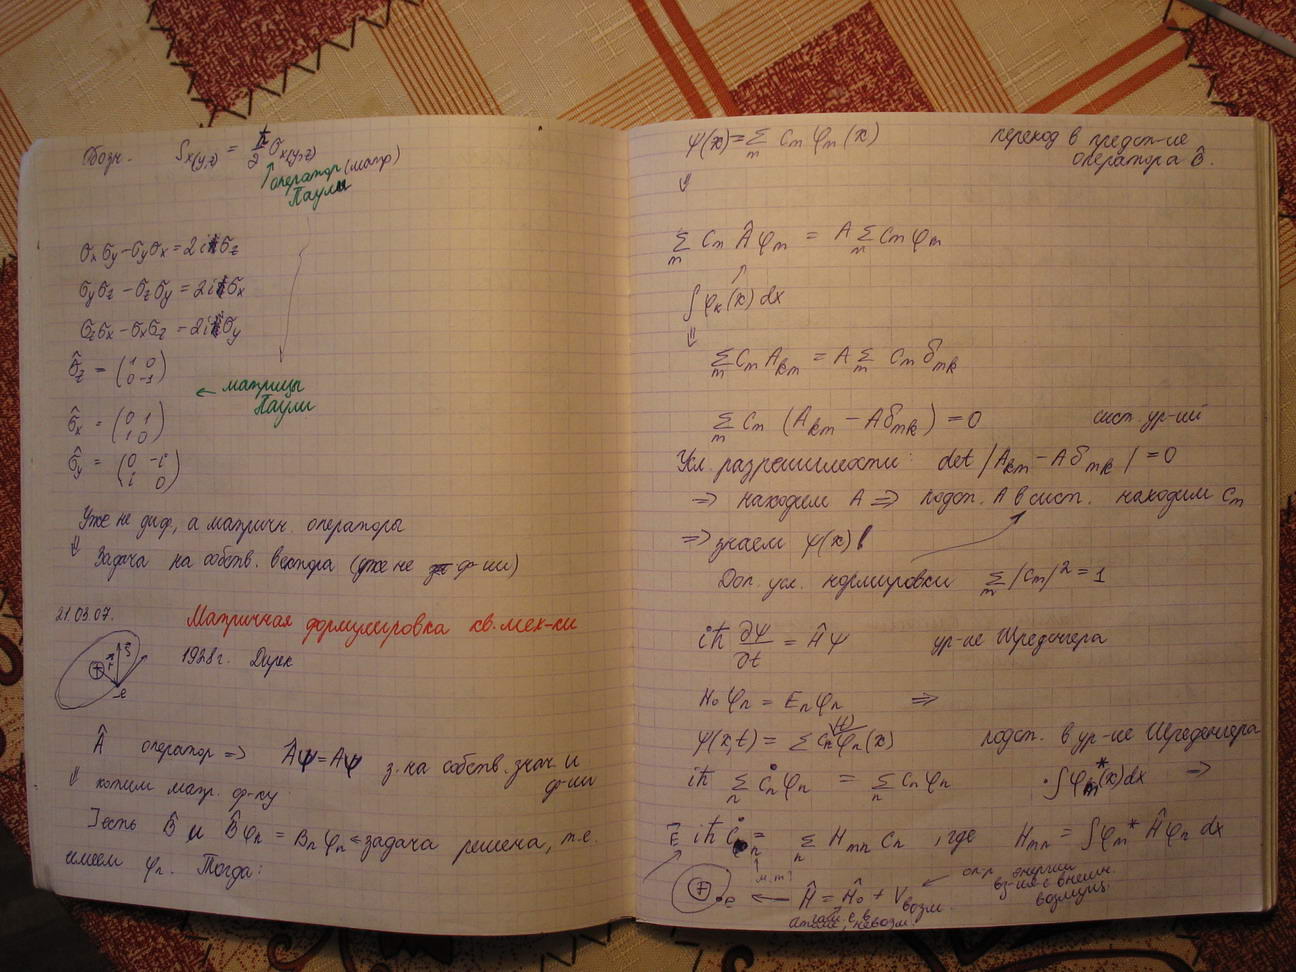 Обозн. S_x(y,z) = ħ/2 σ_x(y,z)
оператор (матр)
Паули
σ_x σ_y − σ_y σ_x = 2i σ_z
σ_y σ_z − σ_z σ_y = 2i σ_x
σ_z σ_x − σ_x σ_z = 2i σ_y
σ̂_z = (1 0
0 -1)
← матрицы
Паули
σ̂_x = (0 1
1 0)
σ̂_y = (0 −i
i 0)
Уже не диф, а матричн операторы
⇓ Задача на собств. вектора (уже не ф-ии)
21.03.07. Матричная формулировка кв. мех-ки
1928г. Дирак
+ r S
e
Â оператор => Âψ = Aψ з. на собств. знач. и
ф-ии
⇓ хотим матр. ф-ку
]есть B̂ и B̂φ_n = B_n φ_n ← задача решена, т.е.
имеем φ_n. Тогда:
ψ(x) = Σ_m C_m φ_m(x) переход в предст-ие
оператора B̂.
⇓
Σ_m C_m Â φ_m = A Σ_m C_m φ_m
∫ φ_k(x) dx
⇓
Σ_m C_m A_km = A Σ_m C_m δ_mk
Σ_m C_m (A_km − Aδ_mk) = 0 сист. ур-ий
Усл. разрешимости: det |A_km − Aδ_mk| = 0
=> находим A => подст. A в сист. находим C_m
=> знаем ψ(x)!
Доп. усл. нормировки Σ_m |C_m|² = 1
iħ ∂ψ/∂t = Ĥψ ур-ие Шредингера
H₀ φ_n = E_n φ_n =>
ψ(x,t) = Σ C_n(t) φ_n(x) подст. в ур-ие Шредингера
iħ Σ_n Ċ_n φ_n = Σ_n C_n φ_n · ∫ φ_m*(x) dx =>
E iħ Ċ = Σ_n H_mn C_n , где H_mn = ∫ φ_m* Ĥ φ_n dx
м.т?
+ e ← Ĥ = Ĥ₀ + V_возм.
опр. энергии
вз-ие с внешн.
возмущ.
атоме, невозм.